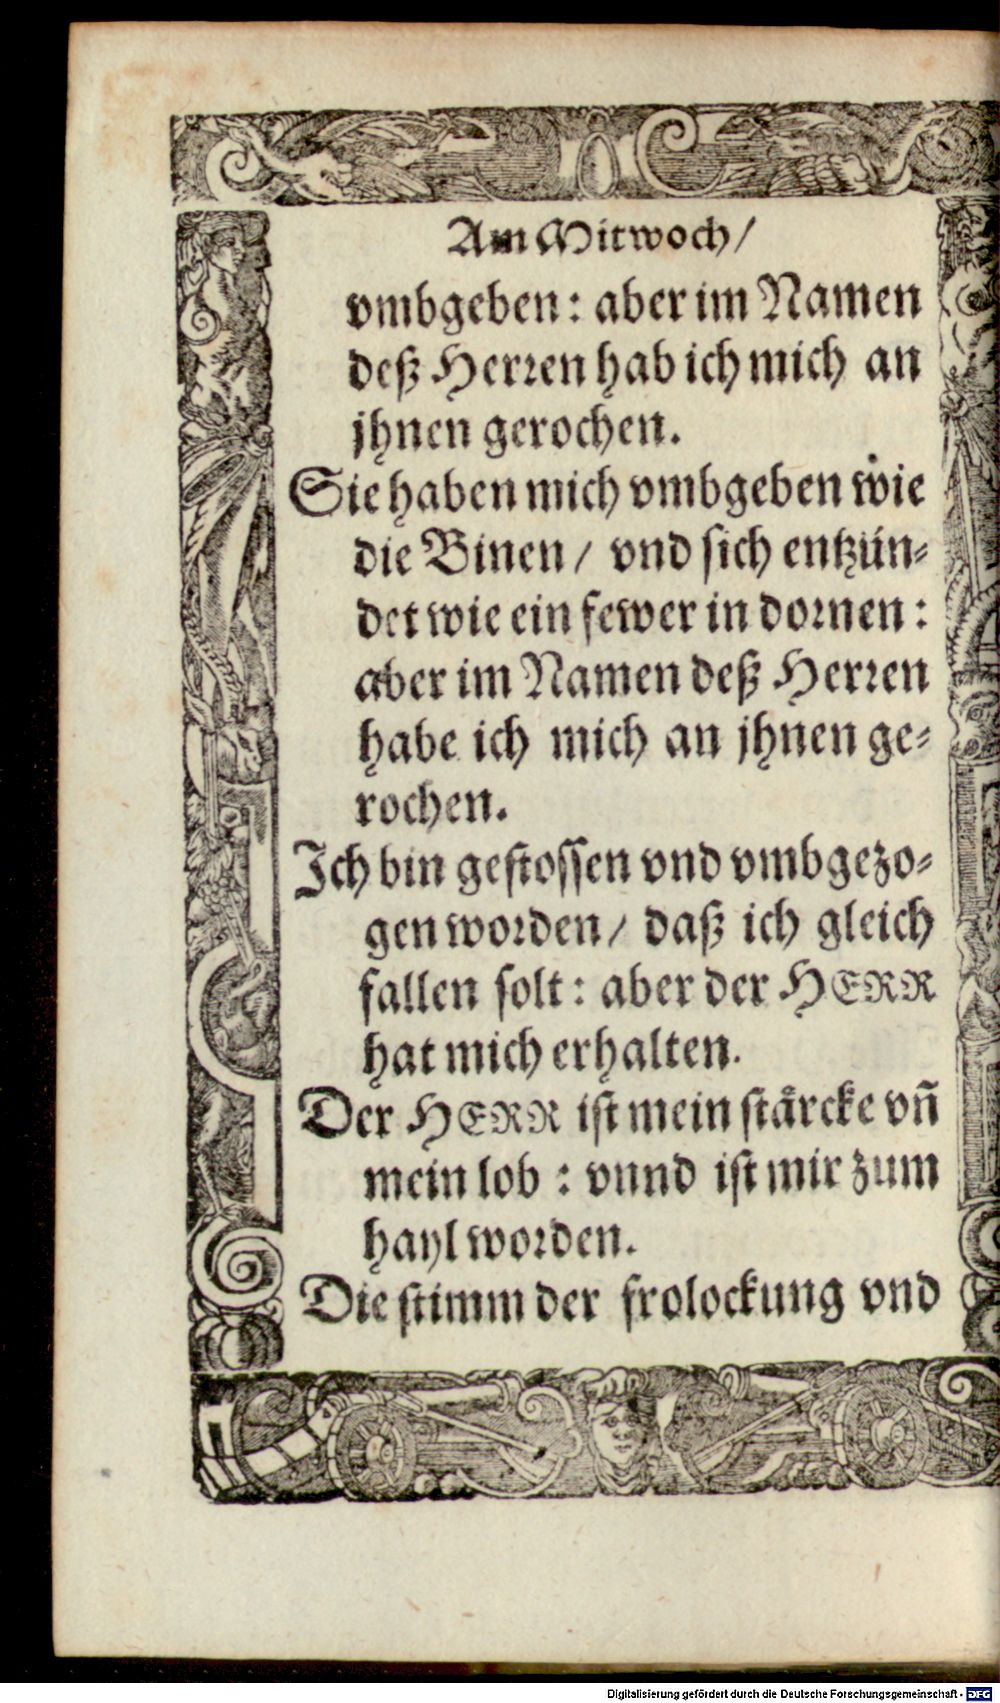 Am Mitwoch/
vmbgeben: aber im Namen
deß Herren hab ich mich an
jhnen gerochen.
Sie haben mich vmbgeben wie
die Binen / vnd sich entzün-
det wie ein fewer in dornen:
aber im Namen deß Herren
habe ich mich an jhnen ge-
rochen.
Ich bin gestossen vnd vmbgezo-
gen worden / daß ich gleich
fallen solt: aber der HERR
hat mich erhalten.
Der HERR ist mein stårcke vñ
mein lob : vnnd ist mir zum
hayl worden.
Die stimm der frolockung vnd
Digitalisierung gefördert durch die Deutsche Forschungsgemeinschaft - DFG